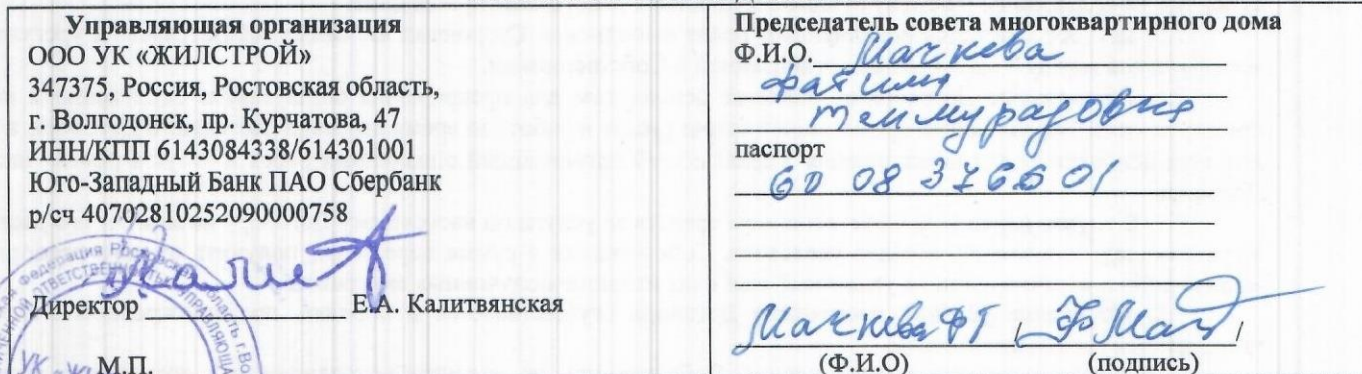 Управляющая организация
ООО УК «ЖИЛСТРОЙ»
347375, Россия, Ростовская область,
г. Волгодонск, пр. Курчатова, 47
ИНН/КПП 6143084338/614301001
Юго-Западный Банк ПАО Сбербанк
р/сч 40702810252090000758
Директор Е.А. Калитвянская
М.П.
Председатель совета многоквартирного дома
Ф.И.О.
Фатима
Теймуразовна
паспорт
60 08 376601
(Ф.И.О) (подпись)